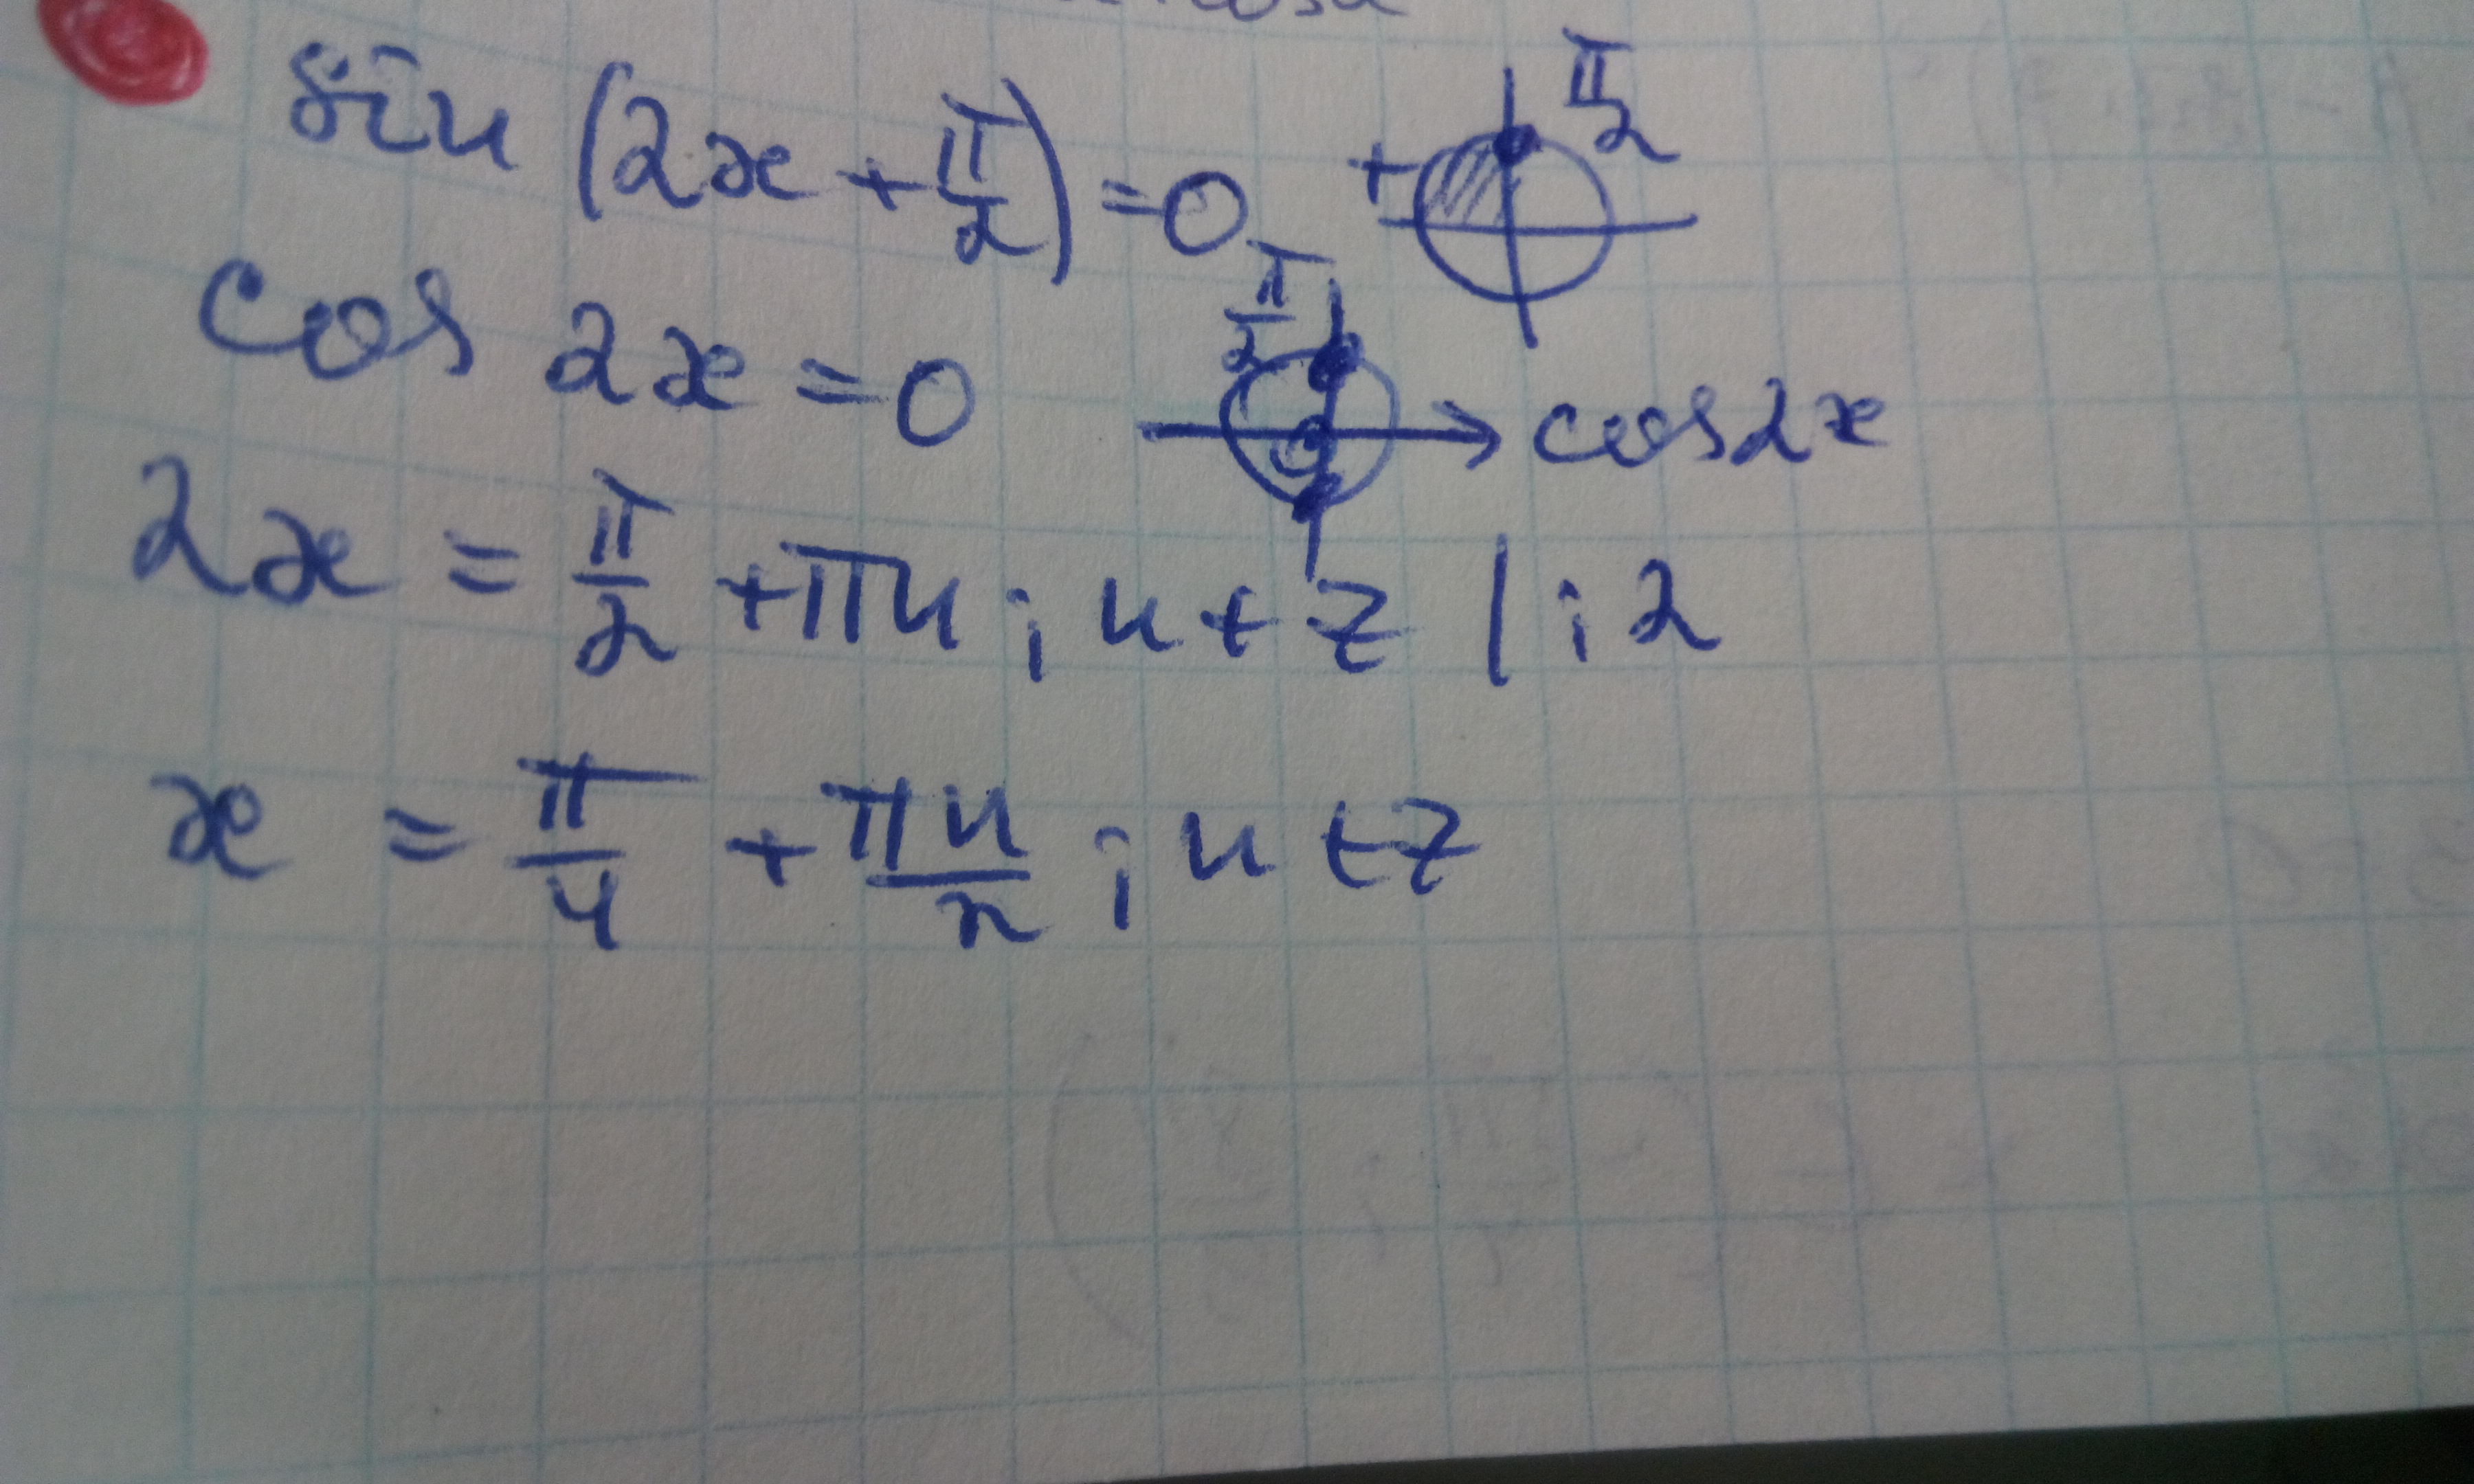 sin (2x + π/2) = 0 + π/2
cos 2x = 0 π/2 0 cos2x
2x = π/2 + πn; n ∈ Z | : 2
x = π/4 + πn/2; n ∈ Z